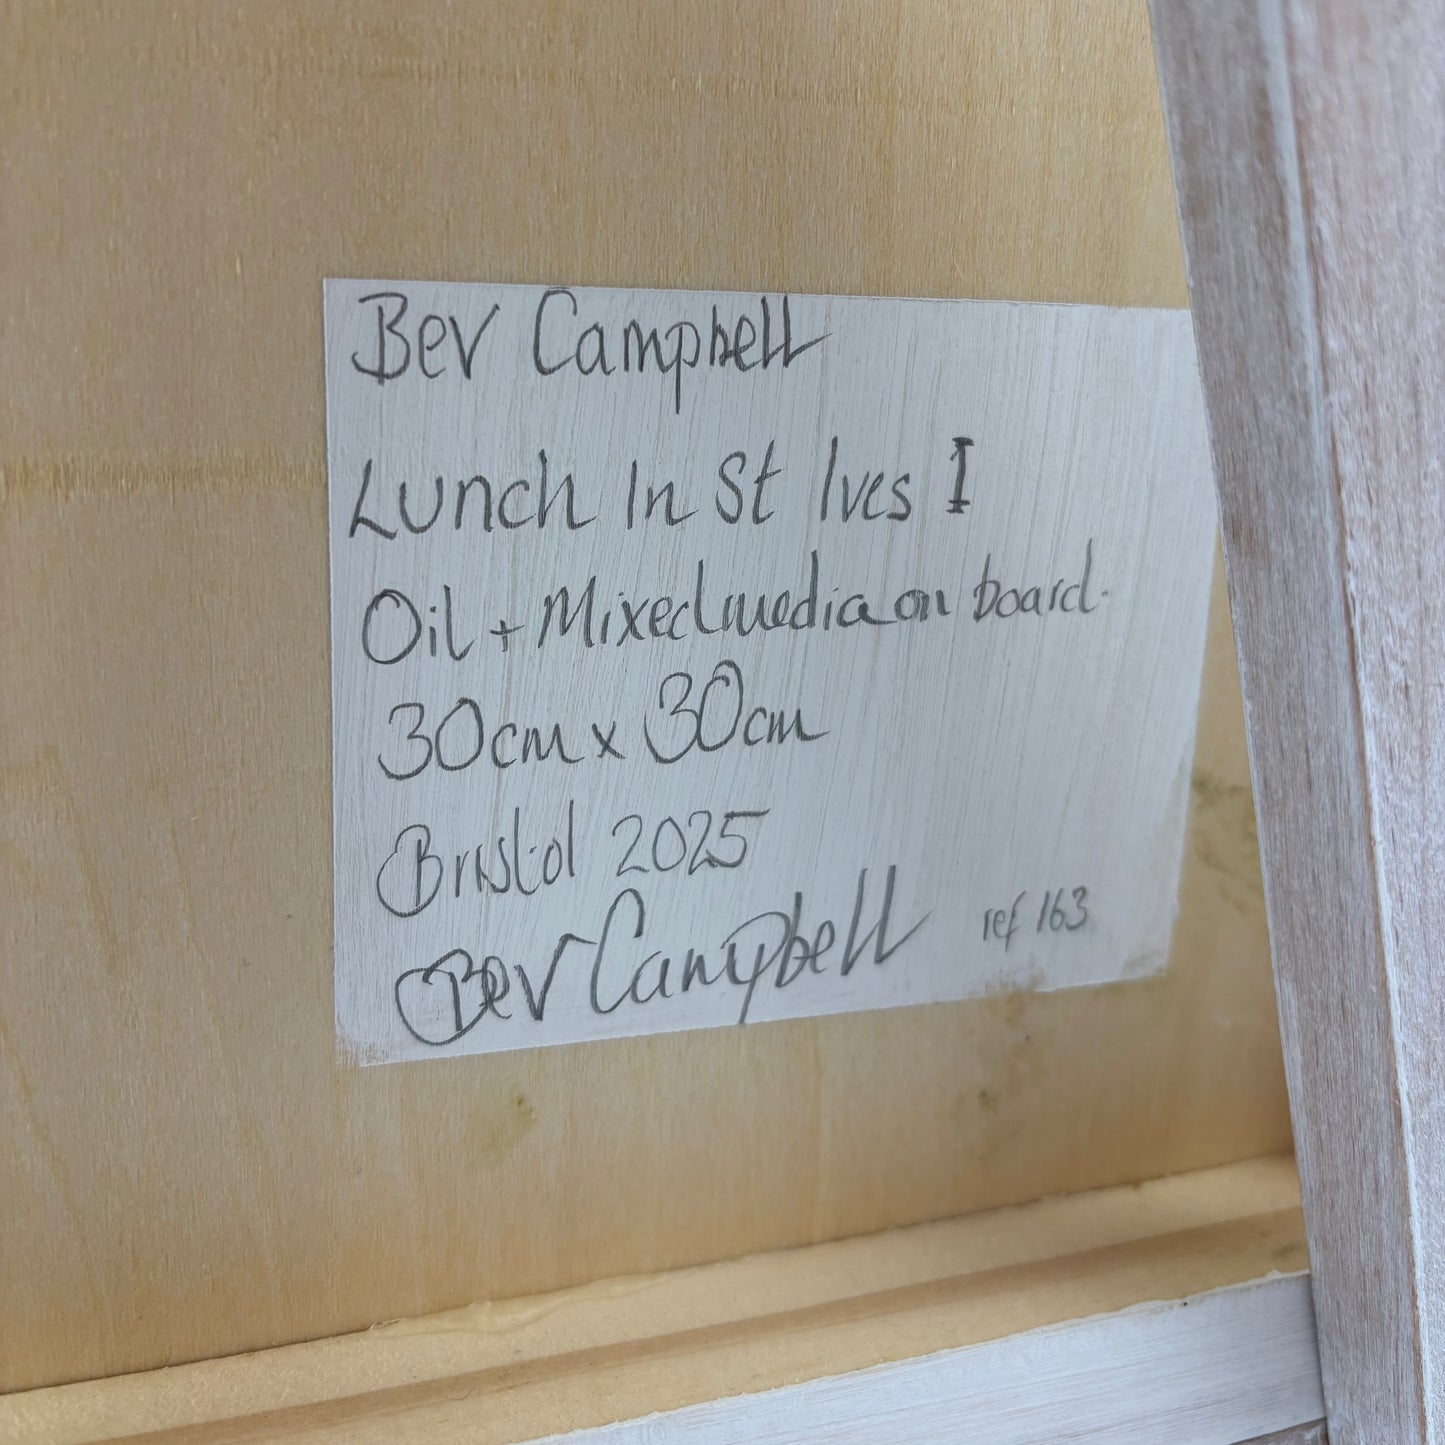 Bev Campbell
Lunch In St Ives I
Oil + Mixed media on board.
30cm x 30cm
Bristol 2025
Bev Campbell ref 163